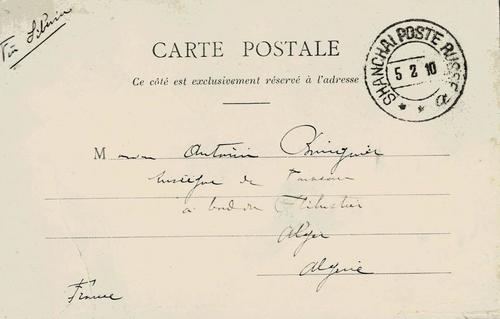 Via Sibérie
CARTE POSTALE
Ce côté est exclusivement réservé à l'adresse
SHANGHAI POSTE RUSSE
5 2 10
a
M Antoine
Enseigne de Vaisseau
à bord du Flibustier
Alger
Algérie
France